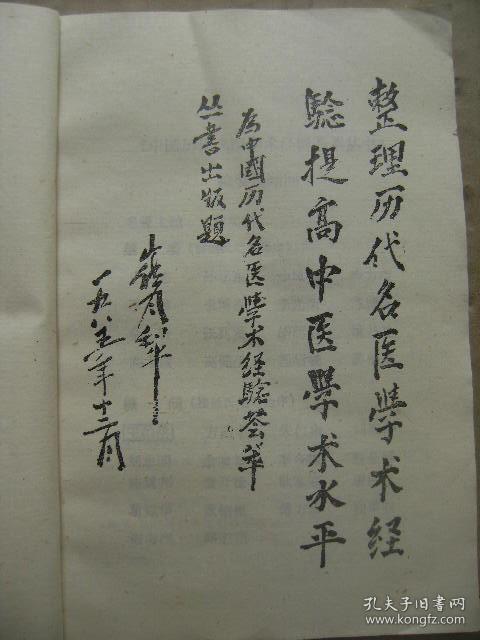 整理历代名医學术经
騐提高中医學术水平
为中國历代名医學术经騐荟萃
丛書出版題
崔月犁
一九八五年十二月
孔夫子旧书网
www.kongfz.com